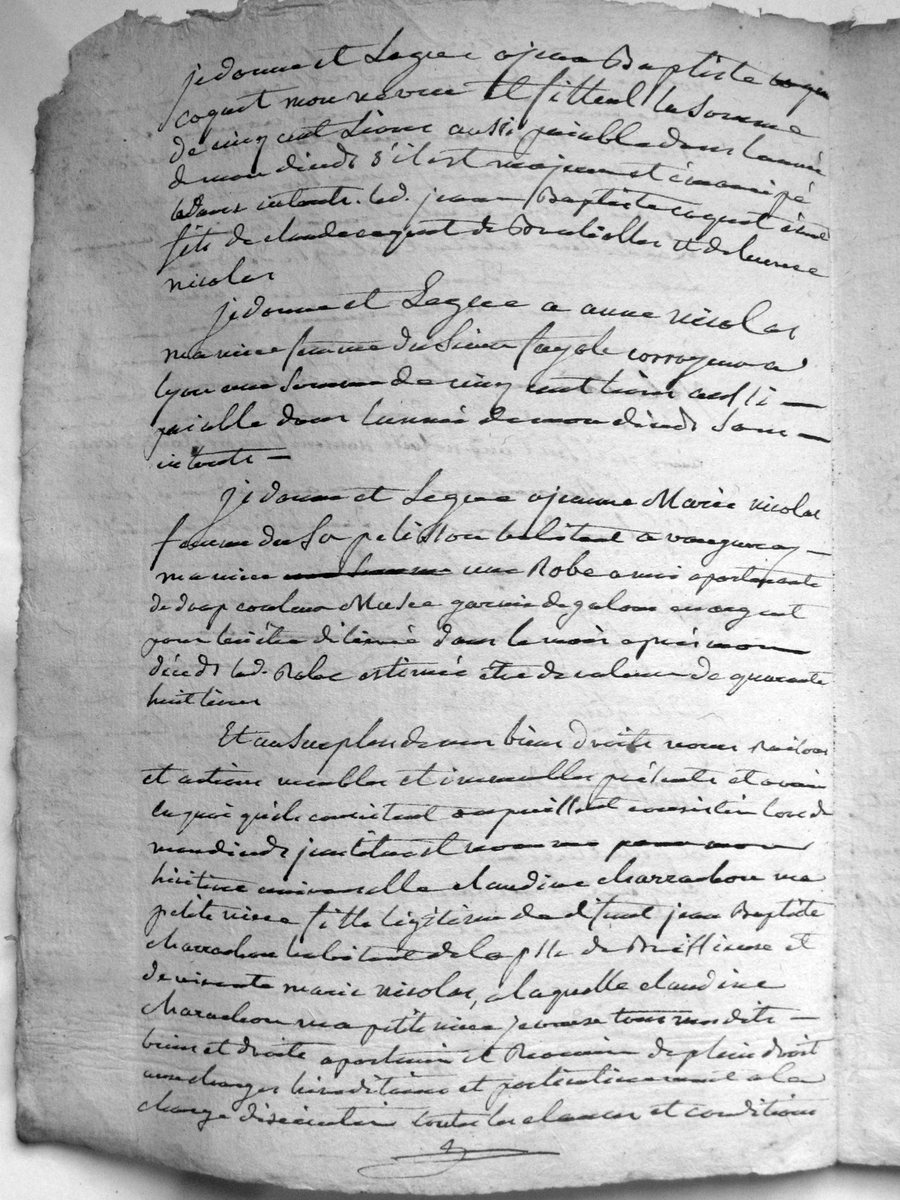 je donne et Legue a jean Baptiste
coquet mon neveu et filleul la Somme
de cinq cent Livres aussi paiable dans lannée
de mon décéds s'il est majeur et émancipé
led. jean Baptiste coquet
fils de claude coquet de et de
nicolas
je donne et Legue a anne nicolas
ma niece femme du Sieur fayole corroyeur a
lyon une Somme de cinq cent livres aussi —
paiable dans l'année de mon décéds Sans —
interets —
je donne et Legue a jeanne Marie nicolas
femme du Sr pelisson habitant a vaugneray —
ma niece une Robe a moi apartenante
de drap couleur Musee garnie de galons en argent
pour lui être délivrée dans le mois aprés mon
décéds lad. Robe estimée être de valeur de quarante
huit livres
Et au Surplus de mes biens droits noms Raisons
et actions meubles et immeubles présents et avenir
en quoi qu'ils consistent ou puissent consister lors de
mon décéds jinstitue et nomme pour mon
héritiere universelle claudine charrachon ma
petite niece fille légitime de défunt jean Baptiste
charrachon habitant de la psse de Brussieuse et
de vivante marie nicolas, a laquelle claudine
charachon ma petite niece je veux tous mes dits —
biens et droits apartenir et Revenir de plein droit
aux charges héréditaires et particulierement a la
charge d'exécuter toutes les clauses et conditions